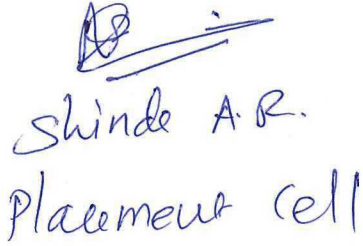 Shinde A.R.
Placement Cell